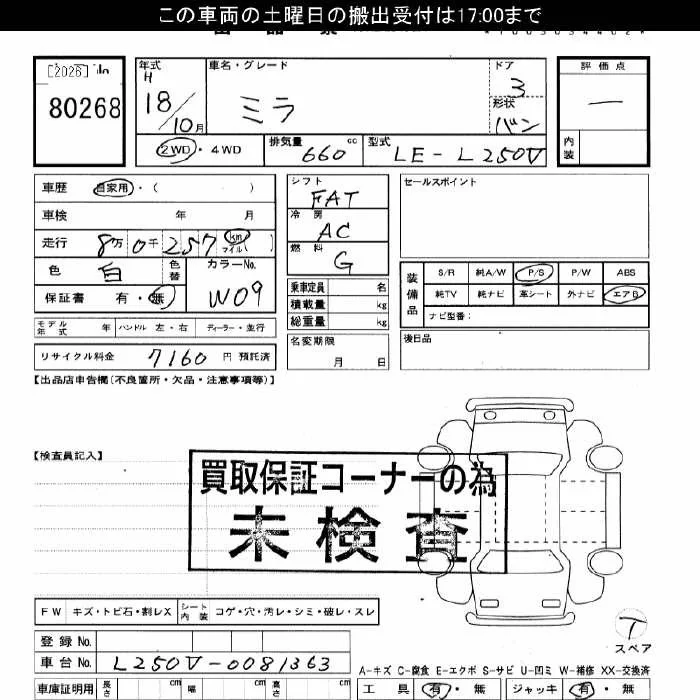 この車両の土曜日の搬出受付は17:00まで
[2026] No
80268
年式 車名・グレード ドア 評価点
H
18/10月 ミラ 3 —
形状
バン
内装
2WD・4WD 排気量 660 cc 型式 LE-L250V
車歴 自家用・( )
車検 年 月
走行 8万 0千 257 km マイル( )
色 白 色替 カラーNo. W09
保証書 有・無
モデル年式 年 ハンドル 左・右 ディーラー・並行
リサイクル料金 7160 円 預託済
シフト FAT
冷房 AC
燃料 G
乗車定員 名
積載量 kg
総重量 kg
名変期限
月 日
セールスポイント
装備品 S/R 純A/W P/S P/W ABS
純TV 純ナビ 革シート 外ナビ エアB
ナビ型番:
後日品
【出品店申告欄(不良箇所・欠品・注意事項等)】
【検査員記入】
買取保証コーナーの為
未検査
FW キズ・トビ石・割レX シート内装 コゲ・穴・汚レ・シミ・破レ・スレ
T
スペア
登録No.
車台No. L250V-0081363
A-キズ C-腐食 E-エクボ S-サビ U-凹ミ W-補修 XX-交換済
車庫証明用 長さ cm 幅 cm 高さ cm 工具 有・無 ジャッキ 有・無